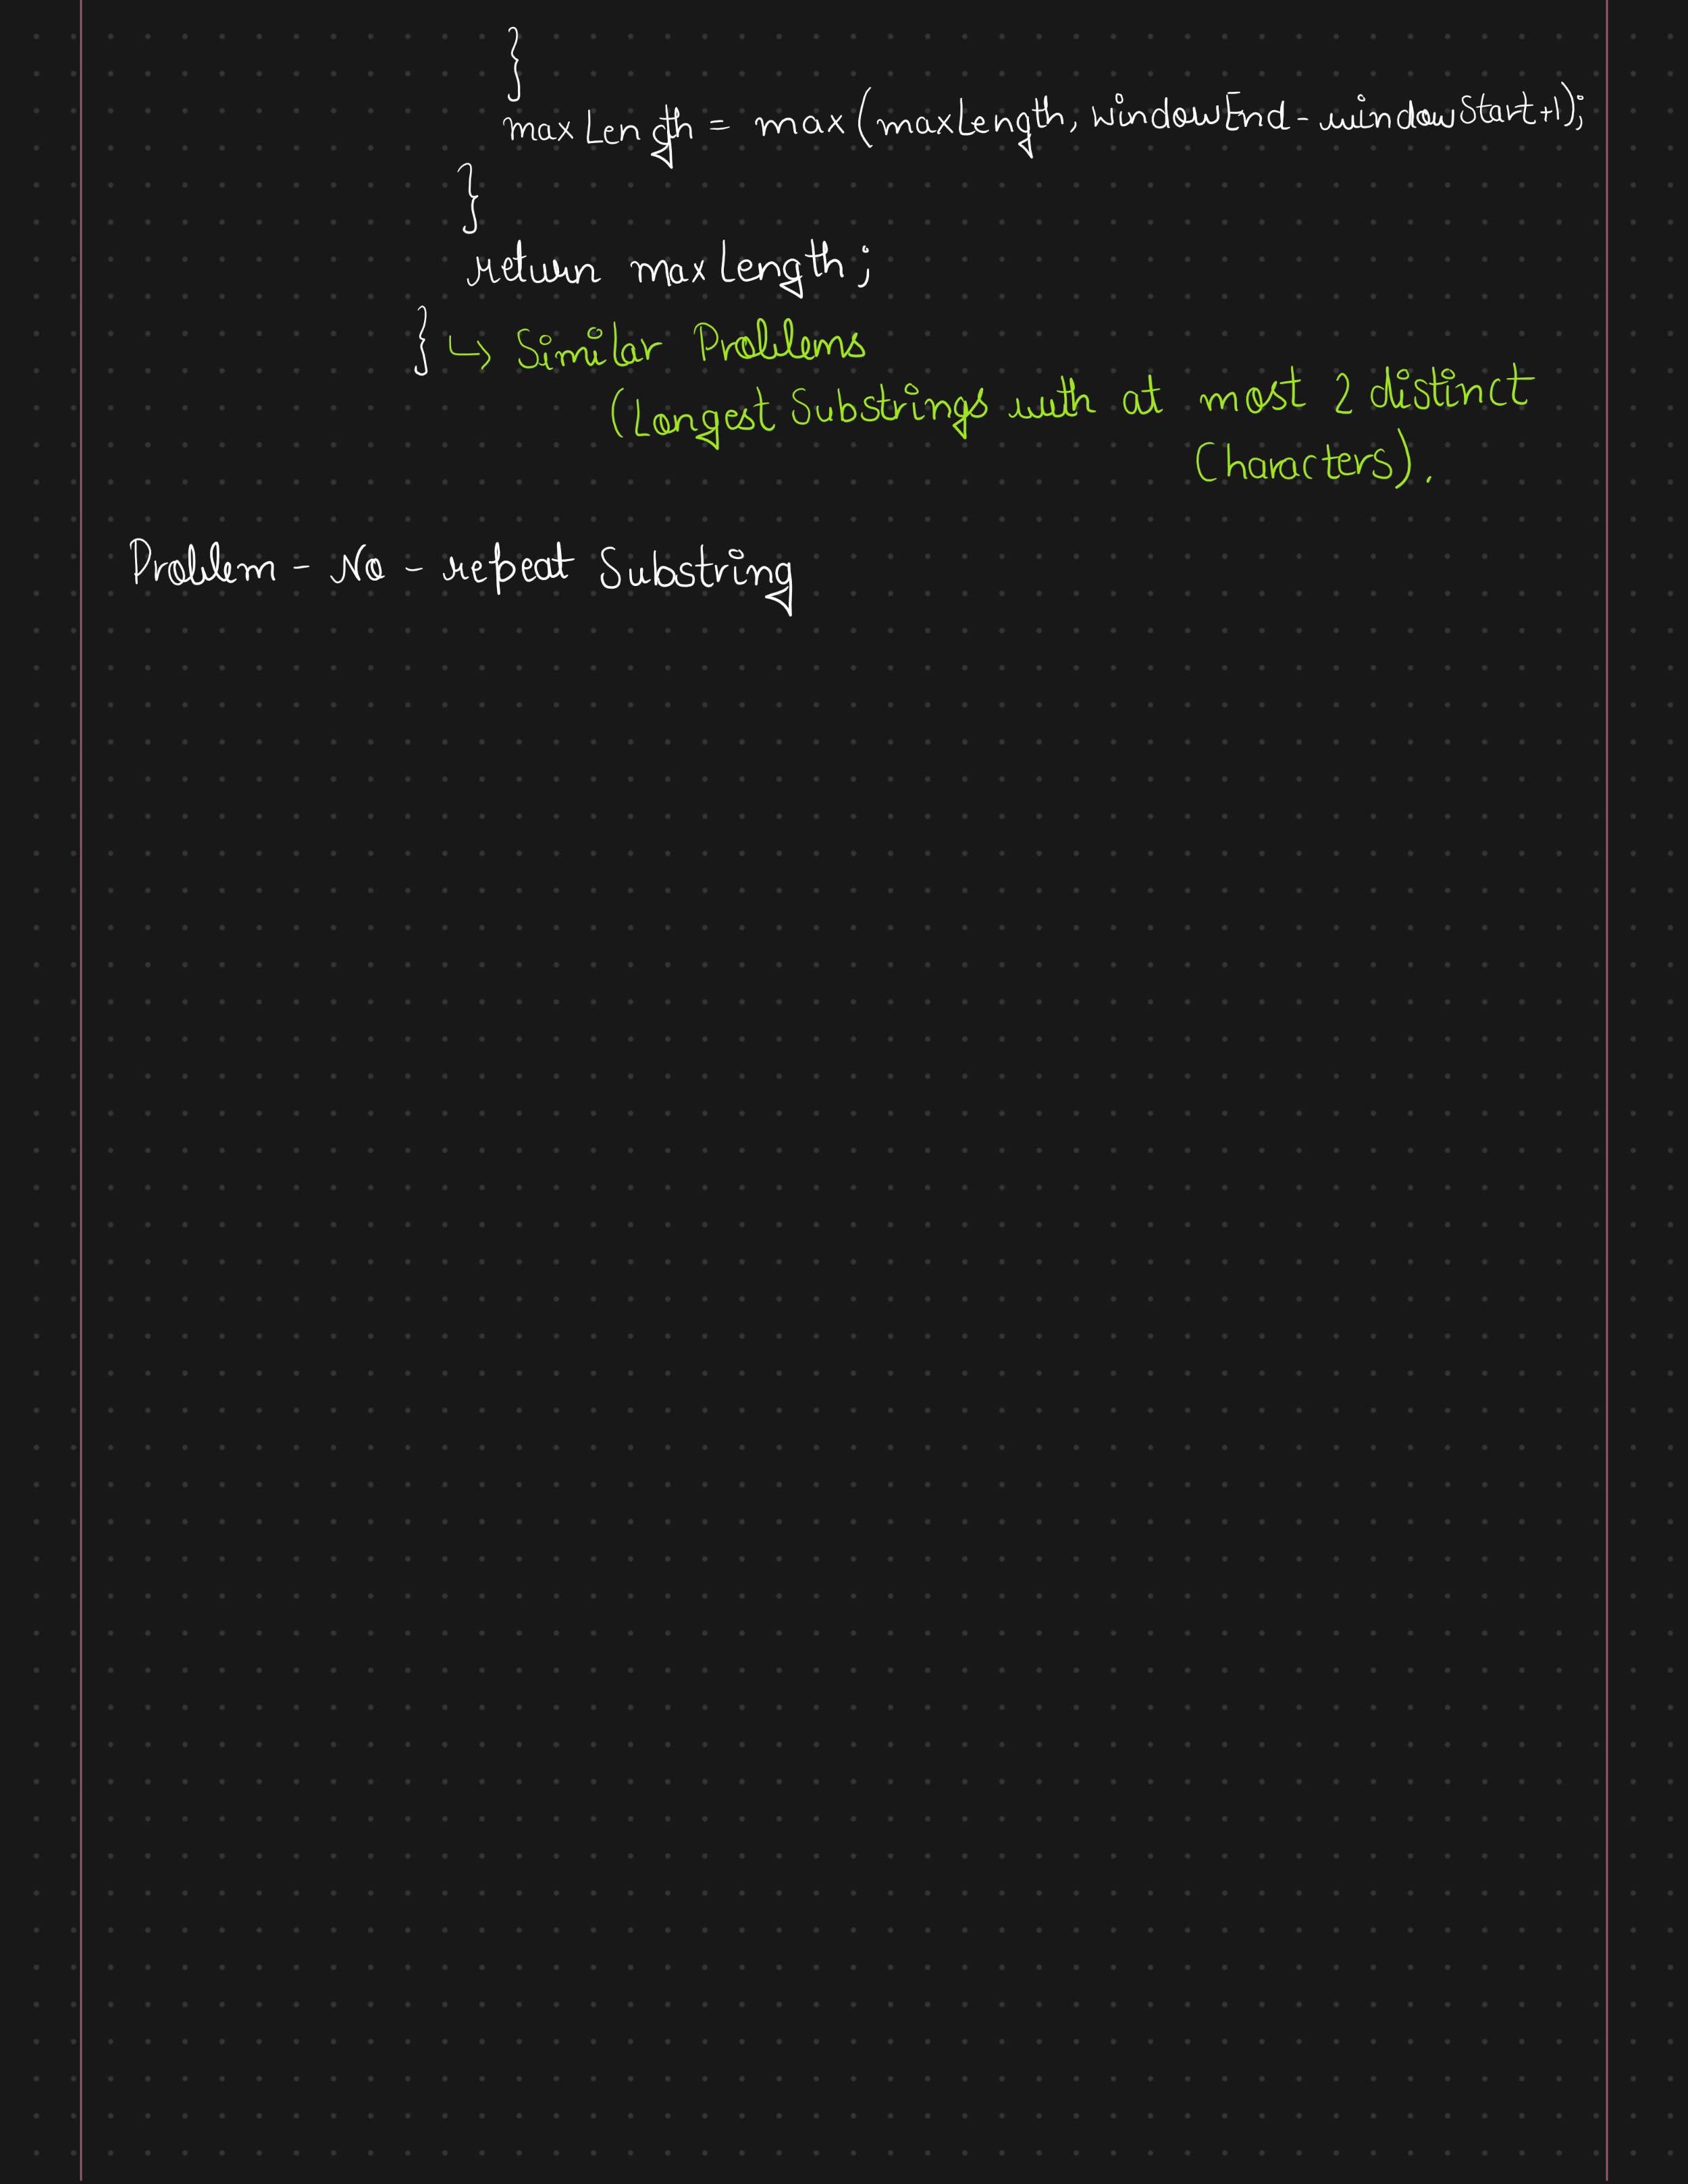 }
maxLength = max(maxLength, windowEnd - windowStart+1);
}
return maxLength;
} ↳ Similar Problems
(Longest Substrings with at most 2 distinct
Characters).
Problem - No - repeat Substring